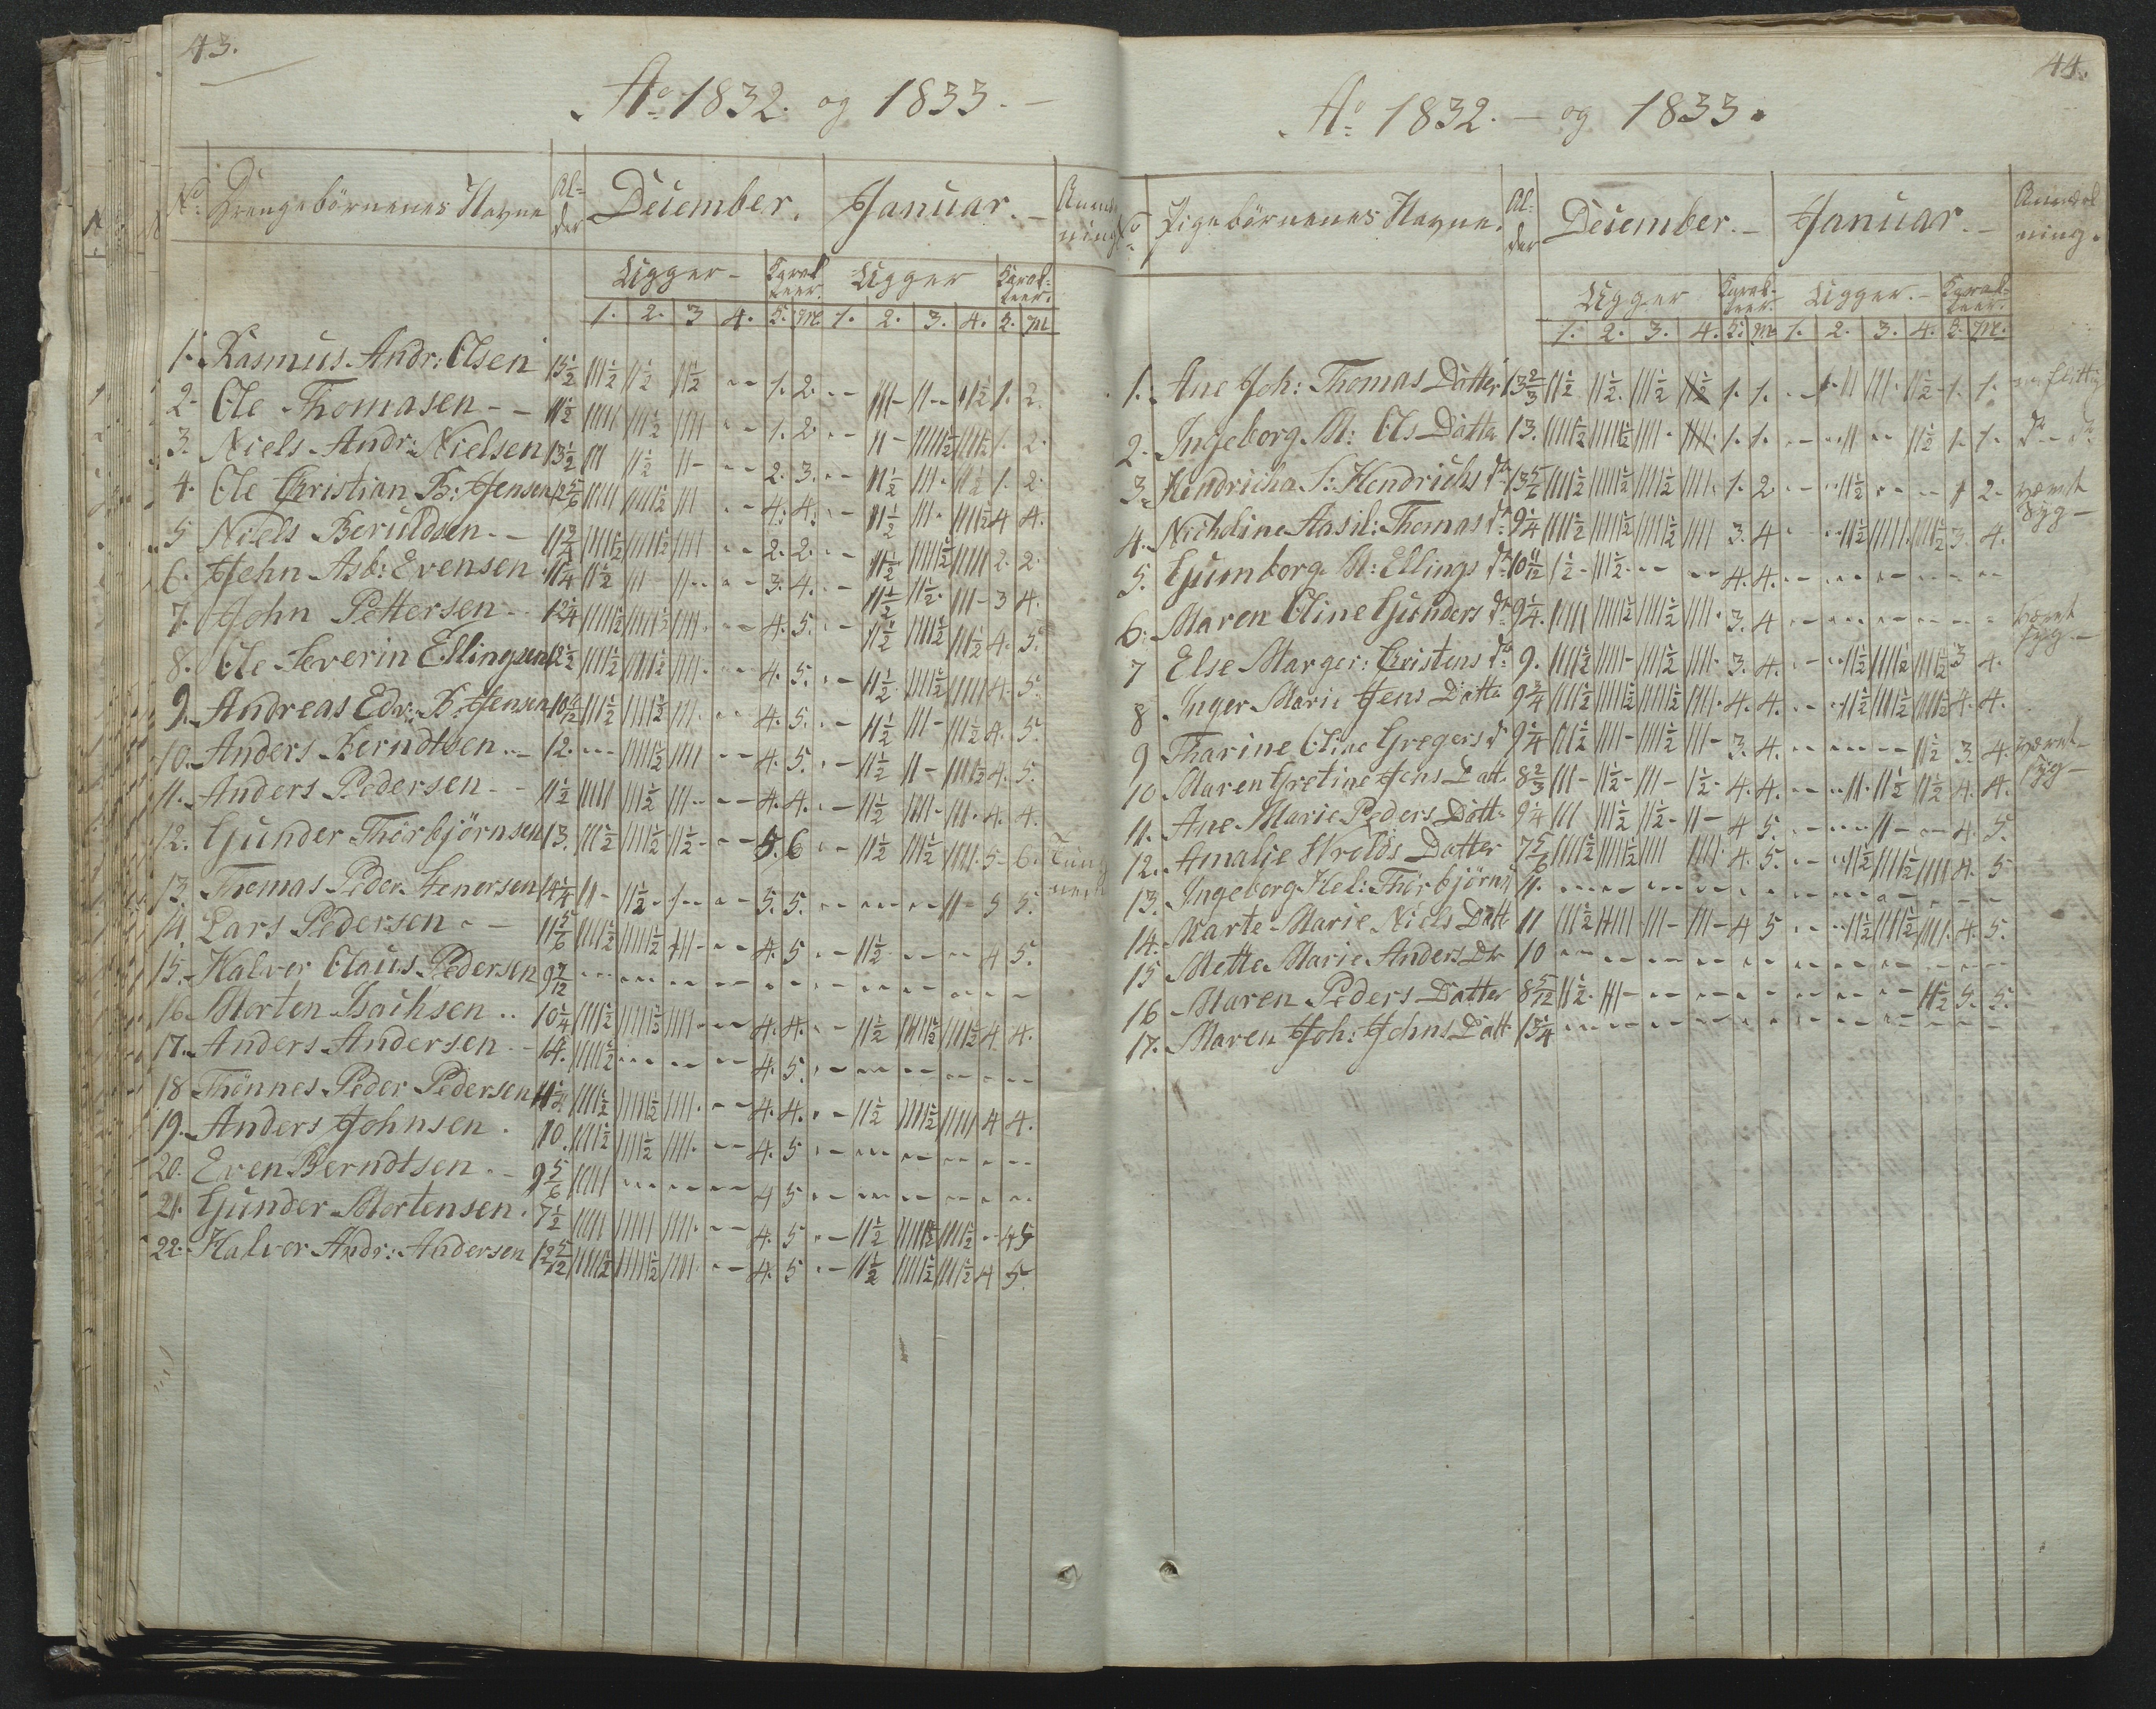 43.
Ao 1832. og 1833. -
No. Drengebörnenes Navne Al= der December. Januar. - Anmærk ning
Ugger - Karak teer. Ugger Karak= teer.
1. 2. 3 4. S. M. 1. 2. 3. 4. S. M
1. Rasmus Andr: Olsen 13½ |||½ ||½ ||½ -- 1. 2. -- |||- ||-- ||½ 1. 2.
2. Ole Thomasen - - 11½ ||||| |||½ |||| -- 1. 2. -- ||- |||||½ ||||½ 1. 2.
3. Niels Andr: Nielsen 13½ ||| ||½ ||- -- 2. 3. -- ||½ |||. ||½ 1. 2.
4. Ole Christian B: Jensen 12 5/6 ||||| ||||½ ||| -- 4. 4. -- ||½ |||. ||||½ 4 4.
5 Niels Beruldsen - - ||||½ ||||½ |||| -- 2. 2. -- ||½ ||||½ ||||| 2. 2.
6. John Asb: Evensen 11¼ ||½ ||| ||-- -- 3. 4. -- ||½ ||½ |||- 3 4.
7. John Pettersen - - 12¼ |||||½ ||||½ |||| -- 4. 5. -- ||½ ||||½ |||½ 4. 5.
8. Ole Severin Ellingsen 12½ ||||½ ||||½ |||| -- 4. 5. -- ||½ ||||½ ||||| 4. 5.
9. Andreas Edv: B: Jensen |||½ ||||½ |||. -- 4. 5. -- ||½ |||- |||½ 4. 5.
10. Anders Berndtsen - - 12. --- ||||½ |||| -- 4. 5. -- ||½ ||- ||||½ 4. 5.
11. Anders Pedersen - - 11½ ||||| |||½ |||-- -- 4. 4. -- ||½ ||||- |||. 4. 4.
12. Gunder Thorbjörnsen 13. |||½ ||||½ ||½- -- 5. 6 -- ||½ |||½ ||||. 5- 6.
13. Thomas Peder Stenersen 14¼ ||- ||½- |-- -- 5. 5. -- --- -- ||- 5 5.
14. Lars Pedersen - - 11 5/6 ||||½ |||||½ |||- -- 4. 5 -- ||½ -- -- 4 5.
15. Halvor Claus Pedersen 9 7/12 --- --- -- -- - - -- -- -- -- - -
16. Morten Isachsen .. 10¼ ||||½ |||||½ ||||- -- 4. 4. -- ||½ ||||½ ||||½ 4 4.
17. Anders Andersen - - 14. ||||½ --- -- -- 4. 5. -- --- -- -- - -
18 Thönnes Peder Pedersen ||||½ |||||½ ||||. -- 4. 4. -- ||½ ||||½ ||||| 4 4.
19. Anders Johnsen . 10. ||||½ |||½ ||||. -- 4. 5 -- -- -- -- - --
20. Even Berndtsen - - 9 5/6 ||||| --- -- -- 4 5 -- --- -- -- - --
21. Gunder Mortensen . 7½ ||||| ||||| ||||. -- 4. 5 -- ||½ ||||½ ||||½ - 4 5
22. Halvor Andr: Andersen 12 5/12 ||||½ |||||½ ||||. -- 4. 5 -- ||½ ||||½ |||½ 4 5.
44.
Ao 1832. - og 1833.
No Pigebörnenes Navne. Al- der December. - Januar. - Anmærk ning.
Ugger Karak- teer. Ugger. - Karak- teer.
1. 2. 3. 4. S. M 1. 2. 3. 4. S. M.
1. Ane Joh: Thomas Datter 13⅔ ||½ ||½. |||½ ||½ 1. 1. -- |.|| |||. ||½- 1. 1. flittig
2. Ingeborg M: Ols Datter 13. ||||½ ||||½ ||||. ||||. 1. 1. -- --|| -- ||½ 1. 1. do do
3. Hendricha S: Hendrichs dr 13 5/6 |||½ ||||½ ||||½ ||||. 1. 2 -- --||½ -- -- 1 2. været syg -
4. Nicholine Aasil: Thomas dr 9¼ ||||½ ||||½ ||||½ |||| 3. 4 - --||½ |||||. ||||½ 3. 4.
5. Gunnborg M: Ellings dr 10 11/12 |½- |||½- -- -- 4. 4. -- -- -- -- -- --
6. Maren Oline Gunders dr 9¼. ||||| ||||½ ||||½ ||||. 3. 4 -- -- -- -- - - været syg -
7 Else Marger: Christens dr 9. ||||½ |||||- ||||½ ||||. 3. 4. -- --||½ ||||½ ||||½ 3 4.
8 Inger Marie Jens Datter 9¾ |||½ ||||½ ||||½ ||||. 4. 4. -- --||½ ||||½ ||||½ 4. 4.
9 Tharine Oline Gregers d 9¼ |||½ ||||- ||||½ |||- 3. 4. -- -- -- ||½ 3. 4. været syg -
10 Maren Gretine Jens Datt. 8⅔ |||- ||½- |||- |½- 4. 4. -- --||. ||½ ||½ 4. 4.
11. Ane Marie Peders Datt. 9¼ ||| |||½ ||½- ||- 4 5. -- -- ||- -- 4. 5.
12. Amalie Wrolds Datter 7 5/6 ||||½ ||||½ |||| ||||. 4. 5. -- --||½ ||||½ ||||| 4. 5
13. Ingeborg Hel: Thorbjörns 11. -- -- -- -- - - -- -- -- -- - -
14. Marte Marie Niels Datt 11 |||½ |||| |||- |||- 4 5 -- --||½ ||||½ ||||. 4. 5.
15 Mette Marie Anders Dtr 10 -- -- -- -- - - -- -- -- -- - -
16 Maren Peders Datter 8 5/12 ||½. |||- -- -- - - -- -- -- ||½ 5. 5.
17. Maren Joh: Johns Datt 13¼ -- -- -- -- - - -- -- -- -- - -